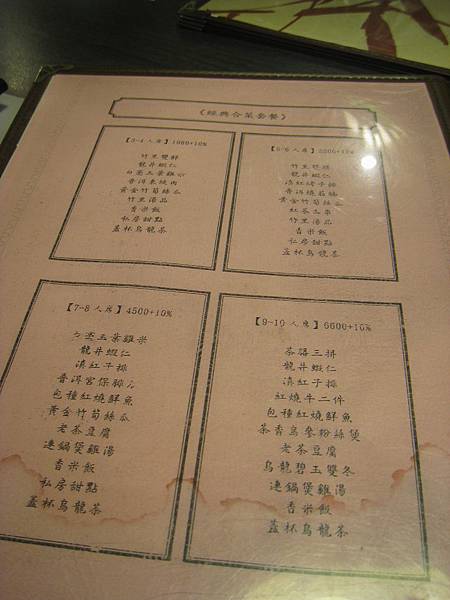 《經典合菜套餐》
【3-4 人席】1980+10%
竹里雙鮮
龍井蝦仁
白毫玉葉雞
普洱東坡肉
黃金竹筍絲瓜
竹里湯品
香米飯
私房甜點
蓋杯烏龍茶
【5-6 人席】
竹里
龍井蝦仁
滇紅子排
普洱燒
黃金竹筍絲瓜
紅茶
竹里湯品
香米飯
私房甜點
蓋杯烏龍茶
【7-8 人席】4500+10%
白毫玉葉雞米
龍井蝦仁
滇紅子排
普洱宮保
包種紅燒鮮魚
黃金竹筍絲瓜
老茶豆腐
連鍋煲雞湯
香米飯
私房甜點
蓋杯烏龍茶
【9-10 人席】6600+10%
茶器三拼
龍井蝦仁
滇紅子排
紅燒牛二件
包種紅燒鮮魚
茶香烏參粉絲煲
老茶豆腐
烏龍碧玉雙冬
連鍋煲雞湯
香米飯
蓋杯烏龍茶